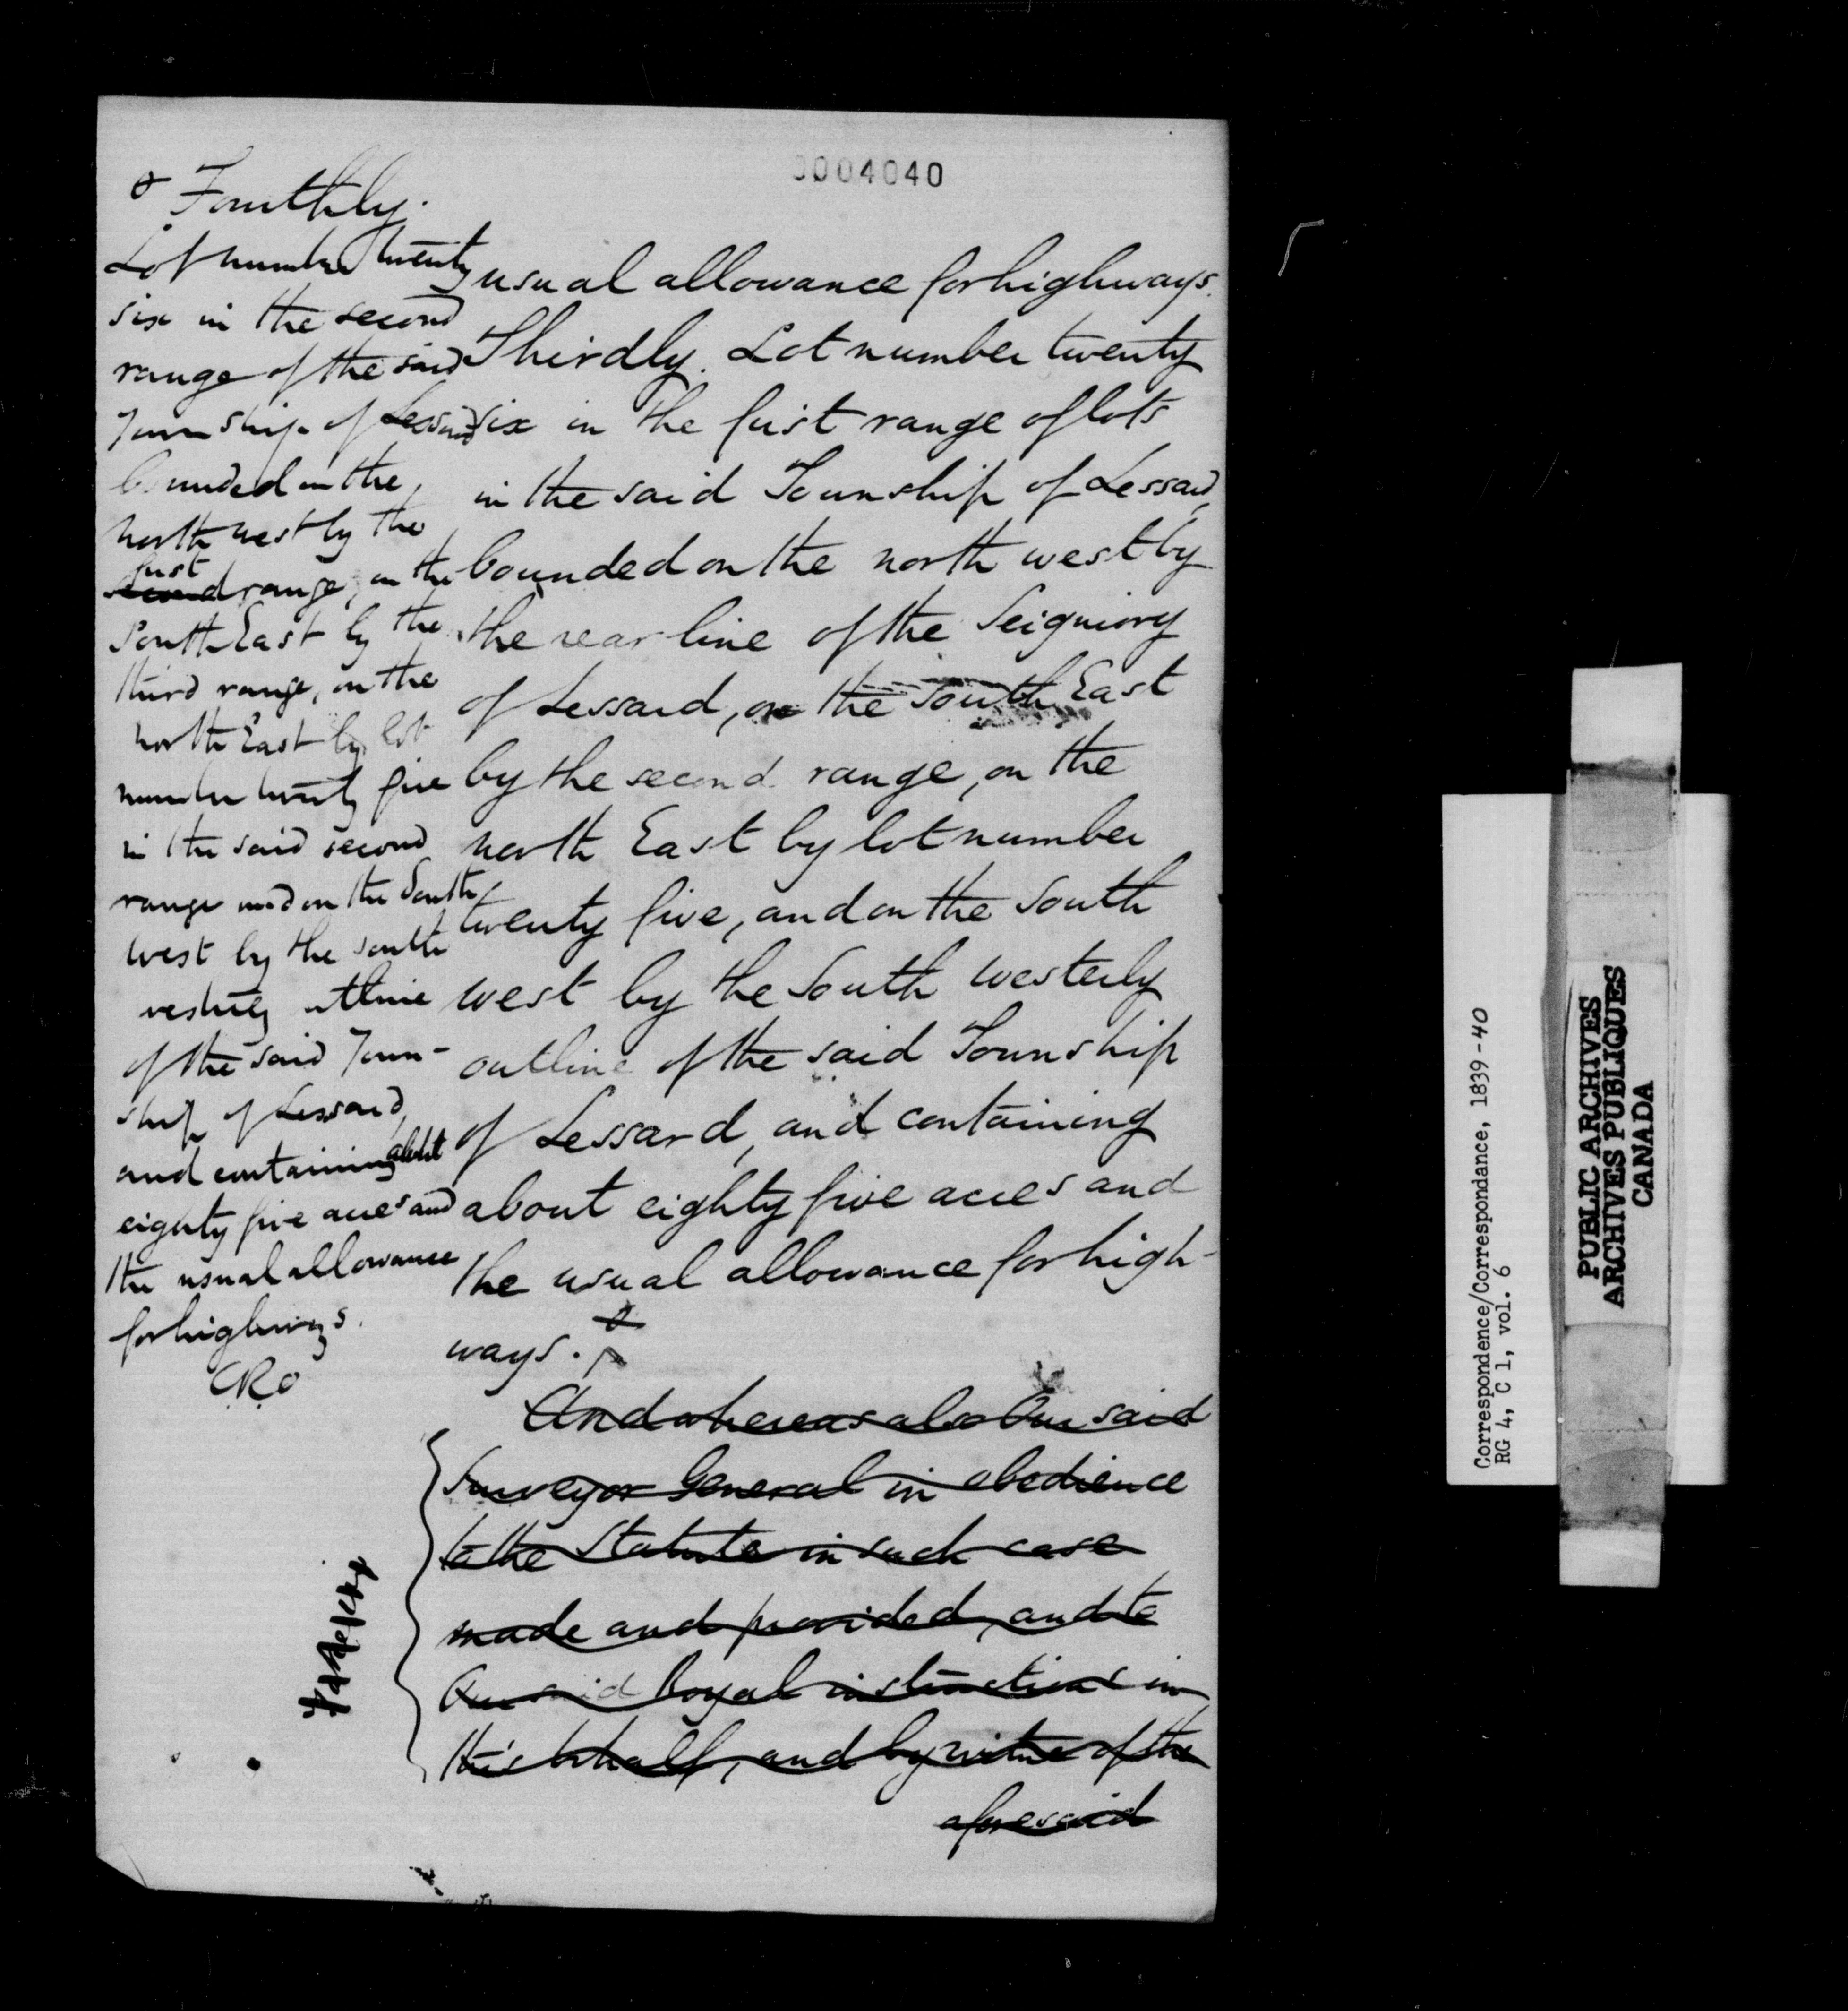 0004040
Fourthly.
Lot number twenty
six in the second
range of the said
Township of Lessard
bounded on the
north west by the
first
second range, on the
South East by the
third range, on the
north East by lot
number twenty five
in the said second
range and on the South
west by the south
westerly outline
of the said Town-
ship of Lessard,
and containing about
eighty five acres and
the usual allowance
for highways.
usual allowance for highways.
Thirdly. Lot number twenty
six in the first range of lots
in the said Township of Lessard,
bounded on the north west by
the rear line of the Seigniory
of Lessard, on the South East
by the second range, on the
north East by lot number
twenty five, and on the South
west by the South westerly
outline of the said Township
of Lessard, and containing
about eighty five acres and
the usual allowance for high-
ways.
And whereas also Our said
Surveyor General in obedience
to the Statute in such case
made and provided, and to
Our said Royal instructions in
this behalf, and by virtue of the
aforesaid
Correspondence/Correspondance, 1839-40
RG 4, C 1, vol. 6
PUBLIC ARCHIVES
ARCHIVES PUBLIQUES
CANADA